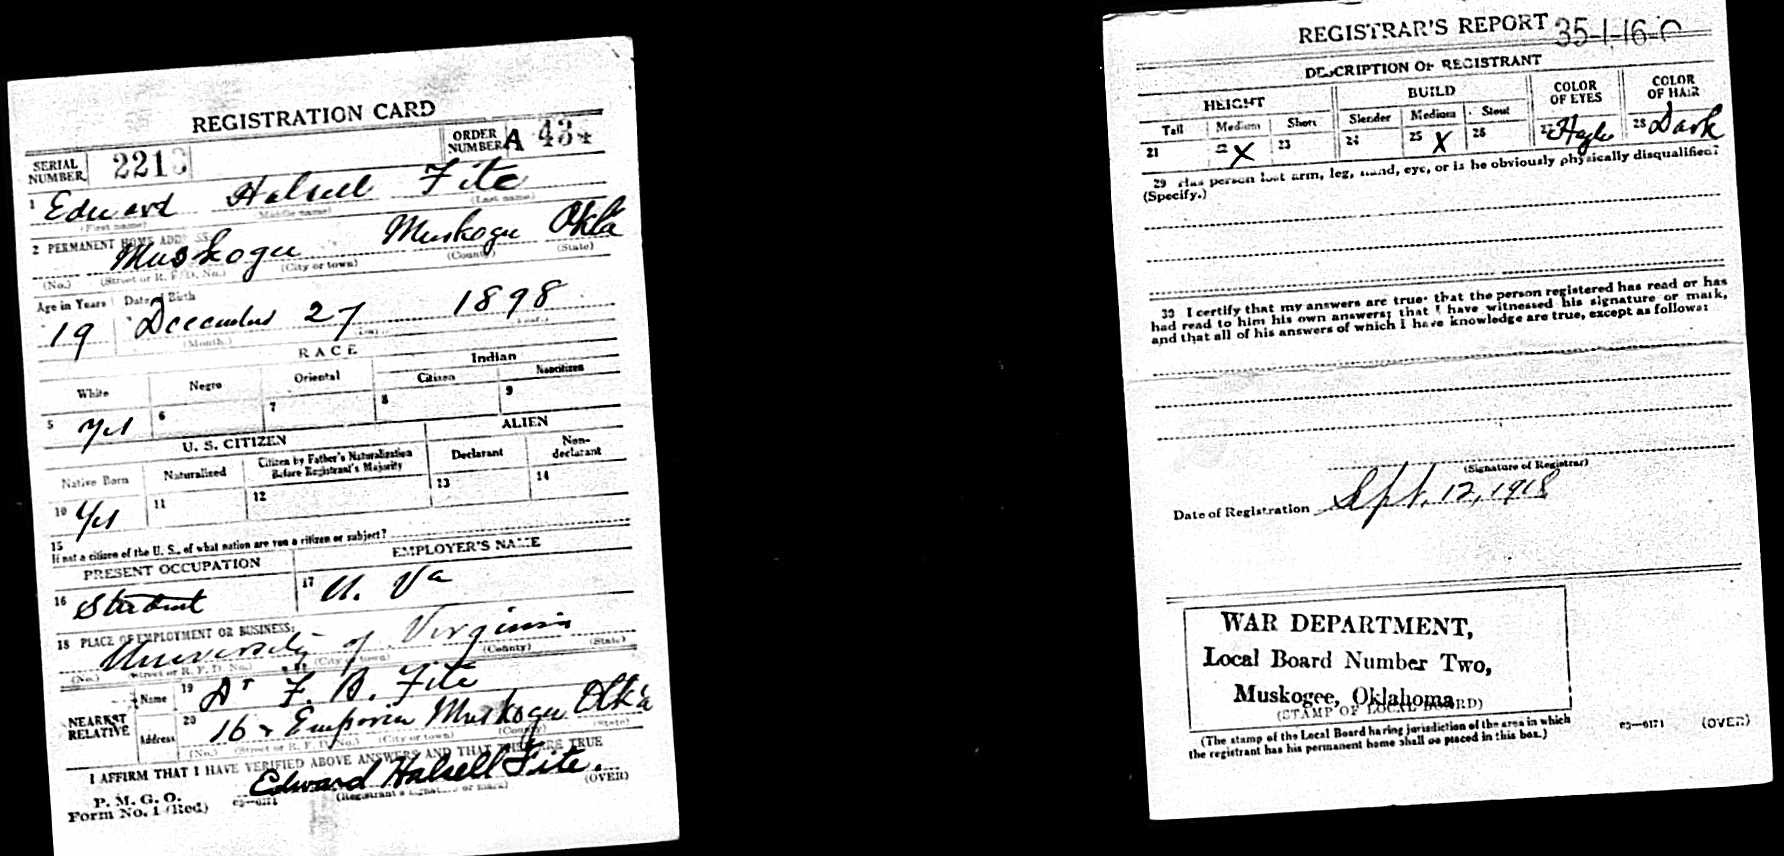 REGISTRATION CARD
SERIAL NUMBER 221
ORDER NUMBER A 434
1 Edward Halsell Fite
(First name) (Middle name) (Last name)
2 PERMANENT HOME ADDRESS
Muskogee Muskogee Okla
(No.) (Street or R. F. D. No.) (City or town) (County) (State)
Age in Years Date of Birth
19 December 27 1898
(Month.) (Day.) (Year.)
RACE
White Negro Oriental Indian
Citizen Noncitizen
5 Yes 6 7 8 9
U. S. CITIZEN ALIEN
Native Born Naturalized Citizen by Father's Naturalization Before Registrant's Majority Declarant Non-declarant
10 Yes 11 12 13 14
15
If not a citizen of the U. S., of what nation are you a citizen or subject?
PRESENT OCCUPATION EMPLOYER'S NAME
16 Student 17 U. Va
18 PLACE OF EMPLOYMENT OR BUSINESS:
University of Virginia
(No.) (Street or R. F. D. No.) (City or town) (County) (State)
NEAREST RELATIVE Name 19 Dr F. B. Fite
Address 20 16 Emporia Muskogee Okla
(No.) (Street or R. F. D. No.) (City or town) (County) (State)
I AFFIRM THAT I HAVE VERIFIED ABOVE ANSWERS AND THAT THEY ARE TRUE
Edward Halsell Fite.
P. M. G. O.
Form No. 1 (Red) 03—6171 (Registrant's signature or mark) (OVER)
REGISTRAR'S REPORT 35-1-16-C
DESCRIPTION OF REGISTRANT
HEIGHT BUILD COLOR OF EYES COLOR OF HAIR
Tall Medium Short Slender Medium Stout
21 22 X 23 24 25 X 26 27 28 Dark
29 Has person lost arm, leg, hand, eye, or is he obviously physically disqualified?
(Specify.)
30 I certify that my answers are true; that the person registered has read or has
had read to him his own answers; that I have witnessed his signature or mark,
and that all of his answers of which I have knowledge are true, except as follows:
(Signature of Registrar)
Date of Registration Sept. 12, 1918
WAR DEPARTMENT,
Local Board Number Two,
Muskogee, Oklahoma
(STAMP OF LOCAL BOARD)
(The stamp of the Local Board having jurisdiction of the area in which
the registrant has his permanent home shall be placed in this box.)
03—6171 (OVER)